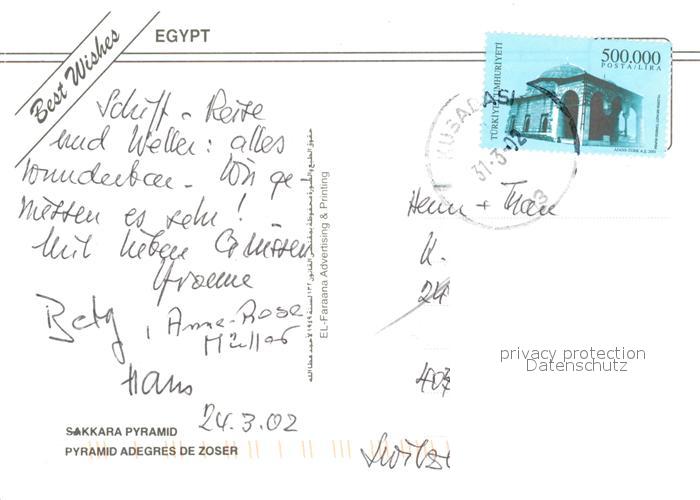 EGYPT
Best Wishes
Schiff - Reise
und Wetter: alles
wunderbar - Wir ge
niessen es sehr!
Mit lieben Grüssen
Yvonne
Betg, Anne-Rose
Müller
Hans
24.3.02
SAKKARA PYRAMID
PYRAMID ADEGRES DE ZOSER
EL-Faraana Advertising & Printing
500.000
POSTA / LİRA
TÜRKİYE CUMHURİYETİ
KUŞADASI
31-3-02
Herrn + Frau
K.
24
403
privacy protection
Datenschutz